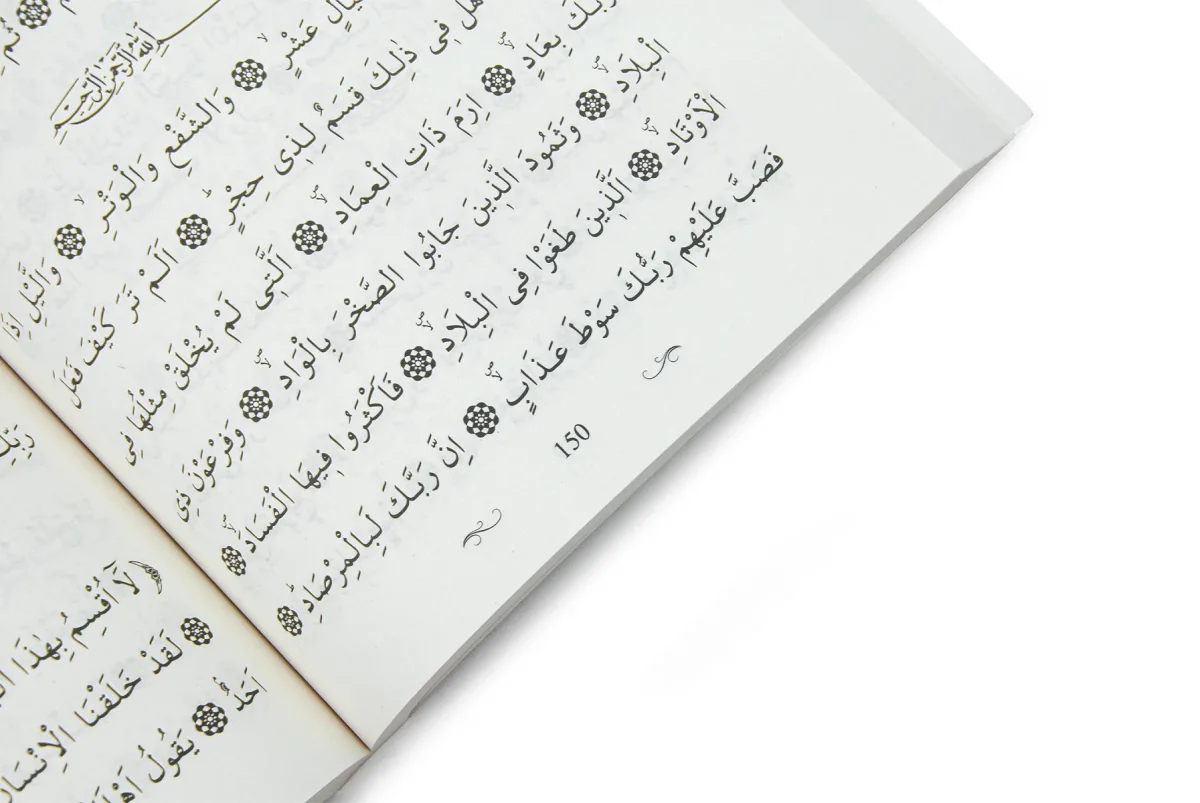 اللّٰهِ الرَّحْمٰنِ الرَّحِيمِ
عَشْرٍۙ وَالشَّفْعِ وَالْوَتْرِۙ وَالَّيْلِ اِذَا
هَلْ فِى ذٰلِكَ قَسَمٌ لِذِى حِجْرٍۜ اَلَمْ تَرَ كَيْفَ فَعَلَ
رَبُّكَ بِعَادٍۖۙ اِرَمَ ذَاتِ الْعِمَادِۖۙ اَلَّتِى لَمْ يُخْلَقْ مِثْلُهَا فِى
الْبِلَادِۖۙ وَثَمُودَ الَّذِينَ جَابُوا الصَّخْرَ بِالْوَادِۖۙ وَفِرْعَوْنَ ذِى
الْاَوْتَادِۖۙ اَلَّذِينَ طَغَوْا فِى الْبِلَادِۖۙ فَاَكْثَرُوا فِيهَا الْفَسَادَۖۙ
فَصَبَّ عَلَيْهِمْ رَبُّكَ سَوْطَ عَذَابٍۖۙ اِنَّ رَبَّكَ لَبِالْمِرْصَادِۜ
150
لَا اُقْسِمُ بِهٰذَا
لَقَدْ خَلَقْنَا الْاِنْسَانَ
اَحَدٌ يَقُولُ